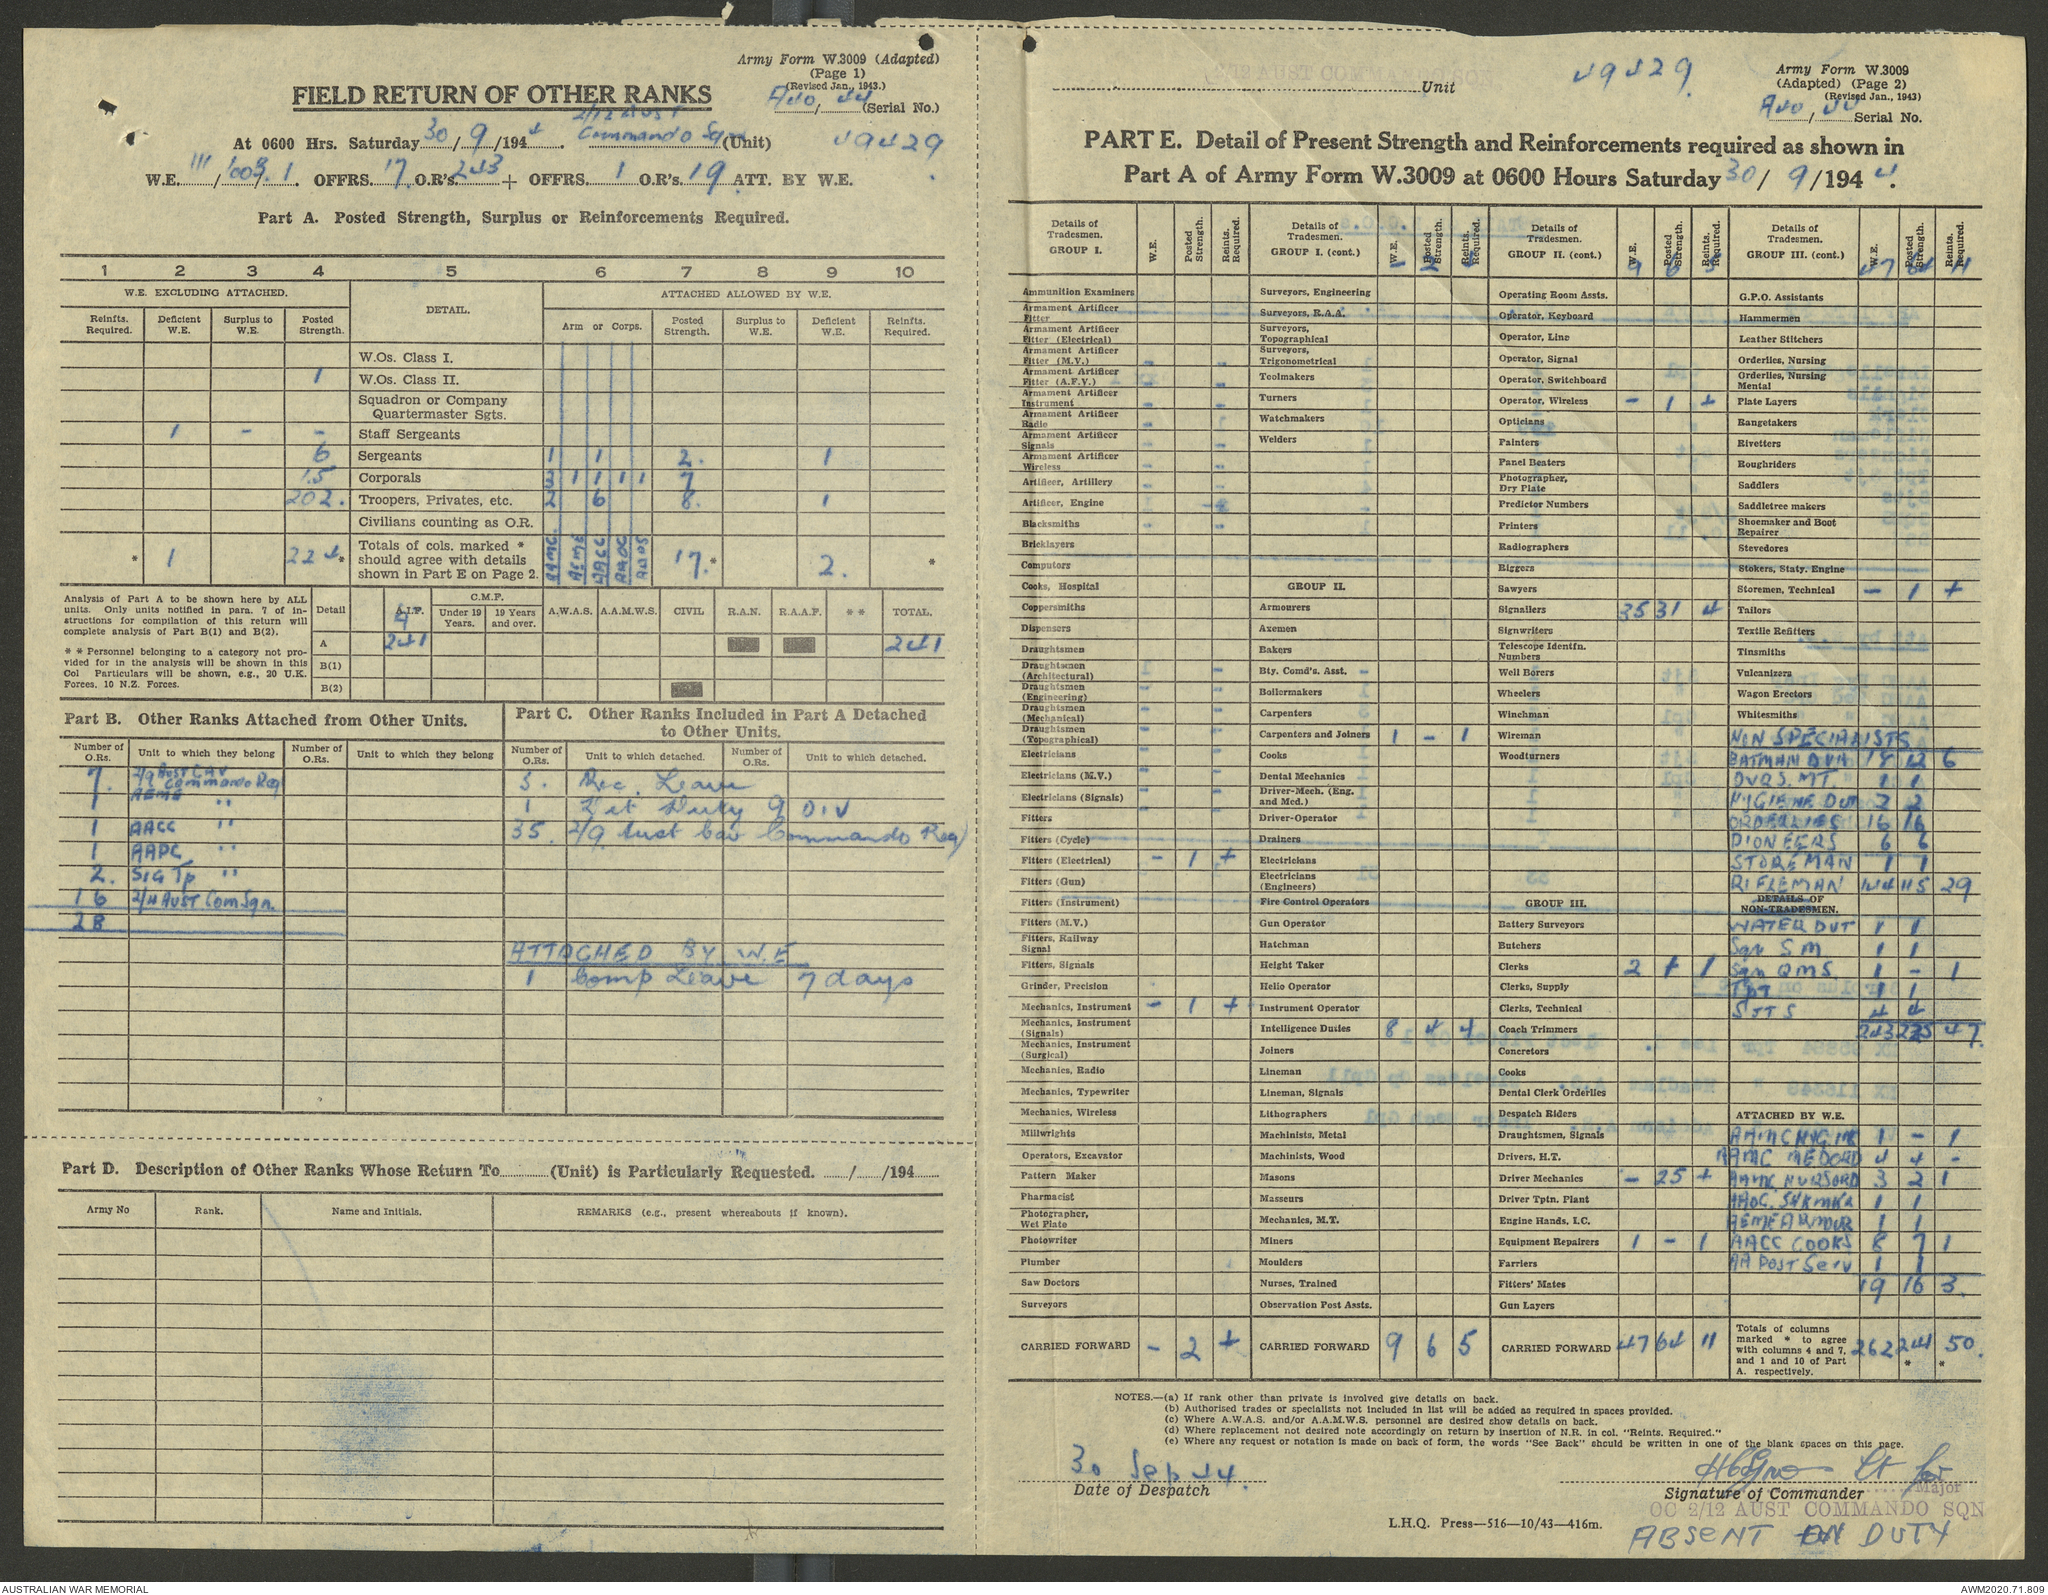 Army Form W.3009 (Adapted)
(Page 1)
(Revised Jan., 1943.)
FIELD RETURN OF OTHER RANKS
A40/44 (Serial No.)
At 0600 Hrs. Saturday 30/9/1944. 2/12 AUST Commando Sqn (Unit) 49429
W.E. 111/1003/1. OFFRS. 17. O.R's 243 + OFFRS. 1 O.R's. 19 ATT. BY W.E.
Part A. Posted Strength, Surplus or Reinforcements Required.
1 2 3 4 5 6 7 8 9 10
W.E. EXCLUDING ATTACHED. DETAIL. ATTACHED ALLOWED BY W.E.
Reinfts. Required. Deficient W.E. Surplus to W.E. Posted Strength. Arm or Corps. Posted Strength. Surplus to W.E. Deficient W.E. Reinfts. Required.
W.Os. Class I.
1 W.Os. Class II.
Squadron or Company Quartermaster Sgts.
1 - - Staff Sergeants
6 Sergeants 1 1 2. 1
15 Corporals 3 1 1 1 1 7
202. Troopers, Privates, etc. 2 6 8. 1
Civilians counting as O.R.
* 1 224* Totals of cols. marked * should agree with details shown in Part E on Page 2. AAMC AEME AACC AAOC 17.* 2. *
Analysis of Part A to be shown here by ALL units. Only units notified in para. 7 of instructions for compilation of this return will complete analysis of Part B(1) and B(2).
* * Personnel belonging to a category not provided for in the analysis will be shown in this Col Particulars will be shown, e.g., 20 U.K. Forces, 10 N.Z. Forces.
Detail A.I.F. C.M.F. Under 19 Years. 19 Years and over. A.W.A.S. A.A.M.W.S. CIVIL R.A.N. R.A.A.F. * * TOTAL.
A 241 241
B(1)
B(2)
Part B. Other Ranks Attached from Other Units.
Number of O.Rs. Unit to which they belong Number of O.Rs. Unit to which they belong
7. 2/9 Aust CAV Commando Reg
1 AEME "
1 AACC "
1 AAPC "
2. SIG Tp "
16 2/11 AUST Com Sqn.
28
Part C. Other Ranks Included in Part A Detached to Other Units.
Number of O.Rs. Unit to which detached. Number of O.Rs. Unit to which detached.
5. Rec. Leave
1 Det Duty 9 DIV
35. 2/9 Aust Cav Commando Reg
ATTACHED BY W.E
1 Comp Leave 7 days
Part D. Description of Other Ranks Whose Return To (Unit) is Particularly Requested. / /194
Army No Rank. Name and Initials. REMARKS (e.g., present whereabouts if known).
2/12 AUST COMMANDO SQN Unit 49429
Army Form W.3009
(Adapted) (Page 2)
(Revised Jan., 1943)
A40/44 Serial No.
PART E. Detail of Present Strength and Reinforcements required as shown in
Part A of Army Form W.3009 at 0600 Hours Saturday 30/9/1944.
Details of Tradesmen. GROUP I. W.E. Posted Strength. Reints. Required.
Ammunition Examiners
Armament Artificer Fitter
Armament Artificer Fitter (Electrical)
Armament Artificer Fitter (M.V.)
Armament Artificer Fitter (A.F.V.)
Armament Artificer Instrument
Armament Artificer Radio
Armament Artificer Signals
Armament Artificer Wireless
Artificer, Artillery
Artificer, Engine
Blacksmiths
Bricklayers
Computors
Cooks, Hospital
Coppersmiths
Dispensers
Draughtsmen
Draughtsmen (Architectural)
Draughtsmen (Engineering)
Draughtsmen (Mechanical)
Draughtsmen (Topographical)
Electricians
Electricians (M.V.)
Electricians (Signals)
Fitters
Fitters (Cycle)
Fitters (Electrical) - 1 +
Fitters (Gun)
Fitters (Instrument)
Fitters (M.V.)
Fitters, Railway Signal
Fitters, Signals
Grinder, Precision
Mechanics, Instrument - 1 +
Mechanics, Instrument (Signals)
Mechanics, Instrument (Surgical)
Mechanics, Radio
Mechanics, Typewriter
Mechanics, Wireless
Millwrights
Operators, Excavator
Pattern Maker
Pharmacist
Photographer, Wet Plate
Photowriter
Plumber
Saw Doctors
Surveyors
CARRIED FORWARD - 2 +
Details of Tradesmen. GROUP I. (cont.) W.E. Posted Strength. Reints. Required.
- 2 +
Surveyors, Engineering
Surveyors, R.A.A.
Surveyors, Topographical
Surveyors, Trigonometrical
Toolmakers
Turners
Watchmakers
Welders
GROUP II.
Armourers
Axemen
Bakers
Bty. Comd's. Asst.
Boilermakers
Carpenters
Carpenters and Joiners 1 - 1
Cooks
Dental Mechanics
Driver-Mech. (Eng. and Med.)
Driver-Operator
Drainers
Electricians
Electricians (Engineers)
Fire Control Operators
Gun Operator
Hatchman
Height Taker
Helio Operator
Instrument Operator
Intelligence Duties 8 4 4
Joiners
Lineman
Lineman, Signals
Lithographers
Machinists, Metal
Machinists, Wood
Masons
Masseurs
Mechanics, M.T.
Miners
Moulders
Nurses, Trained
Observation Post Assts.
CARRIED FORWARD 9 6 5
Details of Tradesmen. GROUP II. (cont.) W.E. Posted Strength. Reints. Required.
9 6
Operating Room Assts.
Operator, Keyboard
Operator, Line
Operator, Signal
Operator, Switchboard
Operator, Wireless - 1 +
Opticians
Painters
Panel Beaters
Photographer, Dry Plate
Predictor Numbers
Printers
Radiographers
Riggers
Sawyers
Signallers 35 31 4
Signwriters
Telescope Identfn. Numbers
Well Borers
Wheelers
Winchman
Wireman
Woodturners
GROUP III.
Battery Surveyors
Butchers
Clerks 2 1 1
Clerks, Supply
Clerks, Technical
Coach Trimmers
Concretors
Cooks
Dental Clerk Orderlies
Despatch Riders
Draughtsmen, Signals
Drivers, H.T.
Driver Mechanics - 25 +
Driver Tptn. Plant
Engine Hands, I.C.
Equipment Repairers 1 - 1
Farriers
Fitters' Mates
Gun Layers
CARRIED FORWARD 47 64 11
Details of Tradesmen. GROUP III. (cont.) W.E. Posted Strength. Reints. Required.
47 64 11
G.P.O. Assistants
Hammermen
Leather Stitchers
Orderlies, Nursing
Orderlies, Nursing Mental
Plate Layers
Rangetakers
Rivetters
Roughriders
Saddlers
Saddletree makers
Shoemaker and Boot Repairer
Stevedores
Stokers, Staty. Engine
Storemen, Technical - 1 +
Tailors
Textile Refitters
Tinsmiths
Vulcanizers
Wagon Erectors
Whitesmiths
NON SPECIALISTS
BATMAN DVR 18 12 6
DVRS. MT. 1 1
HYGIENE DUT 2 2
ORDERLIES 16 16
PIONEERS 6 6
STOREMAN 1 1
RIFLEMAN 144 115 29
DETAILS OF NON-TRADESMEN.
WATER DUT 1 1
Sqn SM 1 1
Sqn QMS. 1 - 1
TPT 1 1
SJTS 4 4
243 225 47.
ATTACHED BY W.E.
AAMC HYGINE 1 - 1
AAMC MEDORD 4 4 -
AAMC. NURSORD 3 2 1
AAOC. SHKMKR 1 1
AEME ARMOUR 1 1
AACC COOKS 8 7 1
AA POST Serv 1 1
19 16 3.
Totals of columns marked * to agree with columns 4 and 7, and 1 and 10 of Part A. respectively. 262 241* 50.*
NOTES.—(a) If rank other than private is involved give details on back.
(b) Authorised trades or specialists not included in list will be added as required in spaces provided.
(c) Where A.W.A.S. and/or A.A.M.W.S. personnel are desired show details on back.
(d) Where replacement not desired note accordingly on return by insertion of N.R. in col. "Reints. Required."
(e) Where any request or notation is made on back of form, the words "See Back" should be written in one of the blank spaces on this page.
30 Sep 44.
Date of Despatch
Lt for
Major
Signature of Commander
OC 2/12 AUST COMMANDO SQN
L.H.Q. Press—516—10/43—416m.
ABSENT ON DUTY
AUSTRALIAN WAR MEMORIAL
AWM2020.71.809